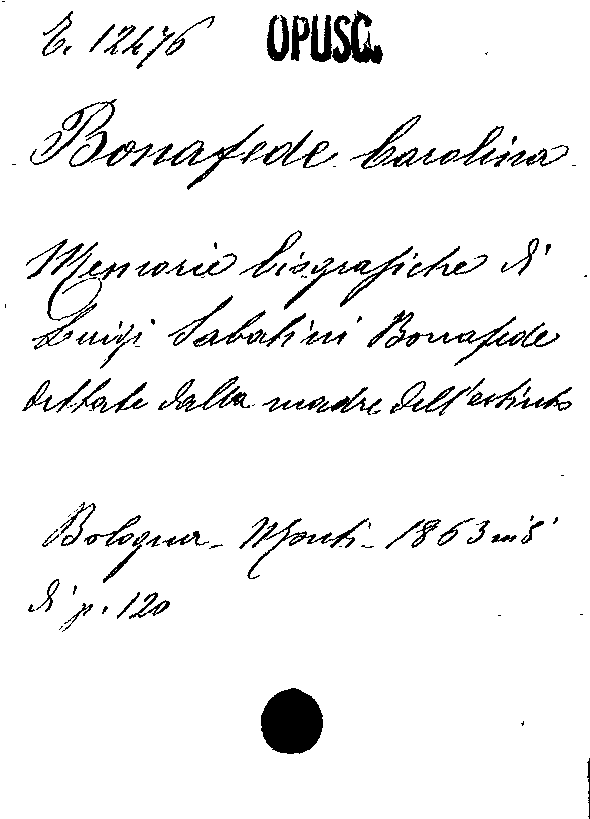 E. 12476 OPUSC.
Bonafede Carolina
Memorie biografiche di
Luigi Sabatini Bonafede
dettate dalla madre dell'estinto
Bologna - Monti - 1863 in 8°
di p. 120